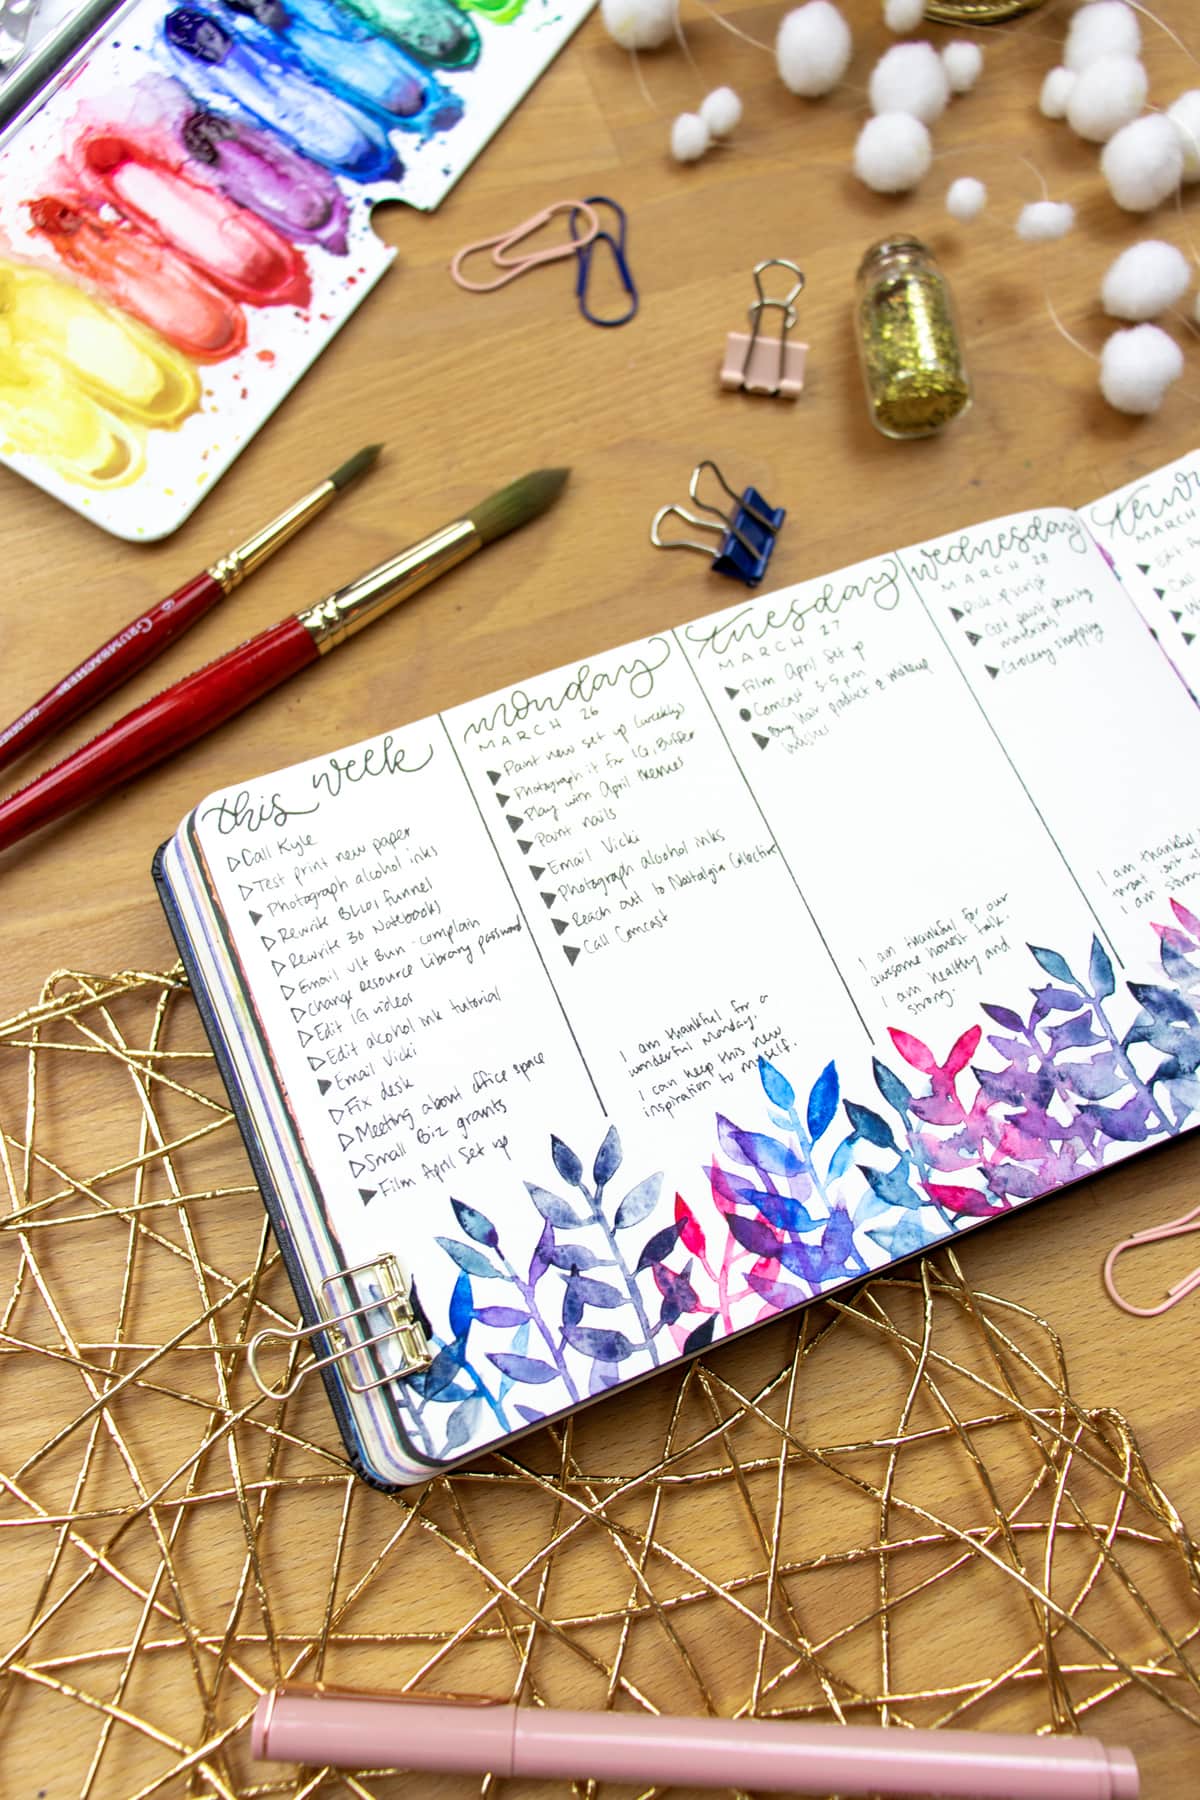 GRUMBACHER
6
GOLDENEDGE
this week
▷Call Kyle
▷Test print new paper
▶Photograph alcohol inks
▷Rewrite BLL01 funnel
▷Rewrite 30 Notebooks
▷Email Ult Bun - complain
▷Change Resource Library password
▷Edit IG videos
▷Edit alcohol ink tutorial
▶Email Vicki
▷Fix desk
▷Meeting about office space
▷Small Biz grants
▶Film April Set up
monday
MARCH 26
▶Paint new set up (weekly)
▶Photograph it for IG, Buffer
▶Play with April themes
▶Paint nails
▶Email Vicki
▶Photograph alcohol inks
▶Reach out to Nostalgia Collective
▶Call Comcast
I am thankful for a
wonderful Monday.
I can keep this new
inspiration to myself.
tuesday
MARCH 27
▶Film April Set up
●Comcast 3-5pm
▶Buy hair product & makeup
washer
I am thankful for our
awesome honest talk.
I am healthy and
strong.
wednesday
MARCH 28
▶Pick up script
▶Get paint pouring
materials
▶Grocery shopping
I am thankful
throat isn't
I am strong
thur
MARCH
▶Edit
▶Call